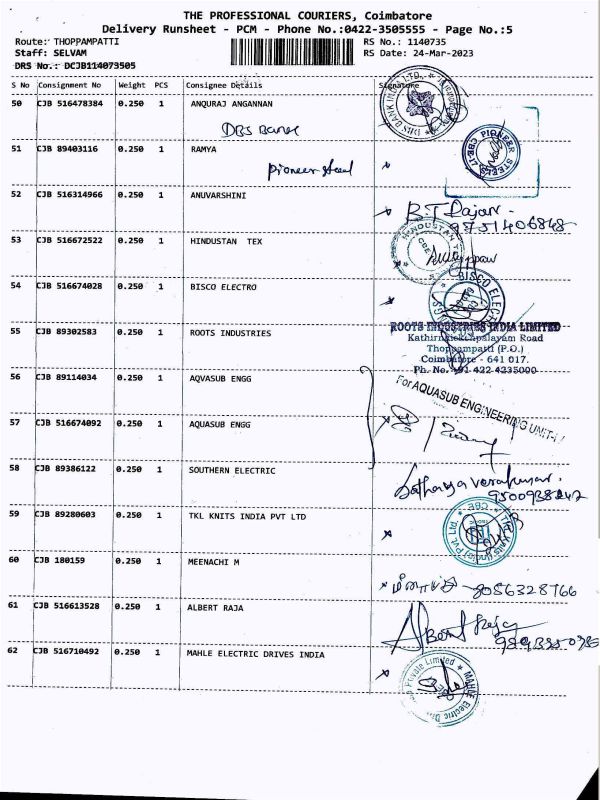 THE PROFESSIONAL COURIERS, Coimbatore
Delivery Runsheet - PCM - Phone No.:0422-3505555 - Page No.:5
Route: THOPPAMPATTI RS No.: 1140735
Staff: SELVAM RS Date: 24-Mar-2023
DRS No.: DCJB114073505
S No Consignment No Weight PCS Consignee Details Signature
50 CJB 516478384 0.250 1 ANQURAJ ANGANNAN
DBS Bank
51 CJB 89403116 0.250 1 RAMYA
Pioneer steel
PIONEER STEELS CBE
52 CJB 516314966 0.250 1 ANUVARSHINI
B.T Rajan
9751406848
53 CJB 516672522 0.250 1 HINDUSTAN TEX
HINDUSTAN
54 CJB 516674028 0.250 1 BISCO ELECTRO
BISCO ELEC
55 CJB 89302583 0.250 1 ROOTS INDUSTRIES
ROOTS INDUSTRIES INDIA LIMITED
Thoppampatti (P.O.)
Coimbatore - 641 017.
Ph. No. +91-422-4235000
56 CJB 89114034 0.250 1 AQVASUB ENGG
For AQUASUB ENGINEERING UNIT-I
57 CJB 516674092 0.250 1 AQUASUB ENGG
58 CJB 89386122 0.250 1 SOUTHERN ELECTRIC
59 CJB 89280603 0.250 1 TKL KNITS INDIA PVT LTD
60 CJB 180159 0.250 1 MEENACHI M
8056328766
61 CJB 516613528 0.250 1 ALBERT RAJA
Albert Raja
62 CJB 516710492 0.250 1 MAHLE ELECTRIC DRIVES INDIA